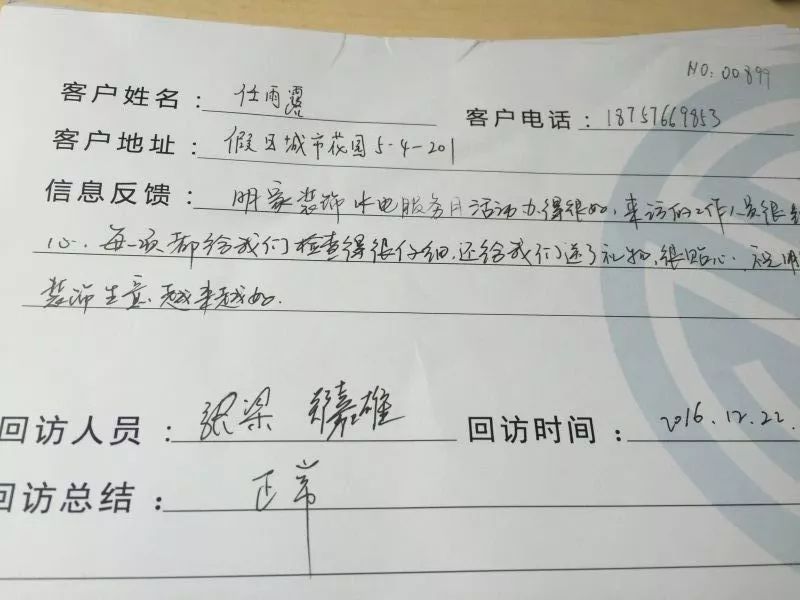 NO: 00899
客户姓名: 任雨露 客户电话: 18757669853
客户地址: 假日城市花园5-4-201
信息反馈: 明家装饰水电服务月活动办得很好,来访的工作人员很
心,每一项都给我们检查得很仔细,还给我们送了礼物,很贴心,祝明
装饰生意越来越好.
回访人员: 张梁 郑嘉雄 回访时间: 2016.12.22
回访总结: 正常